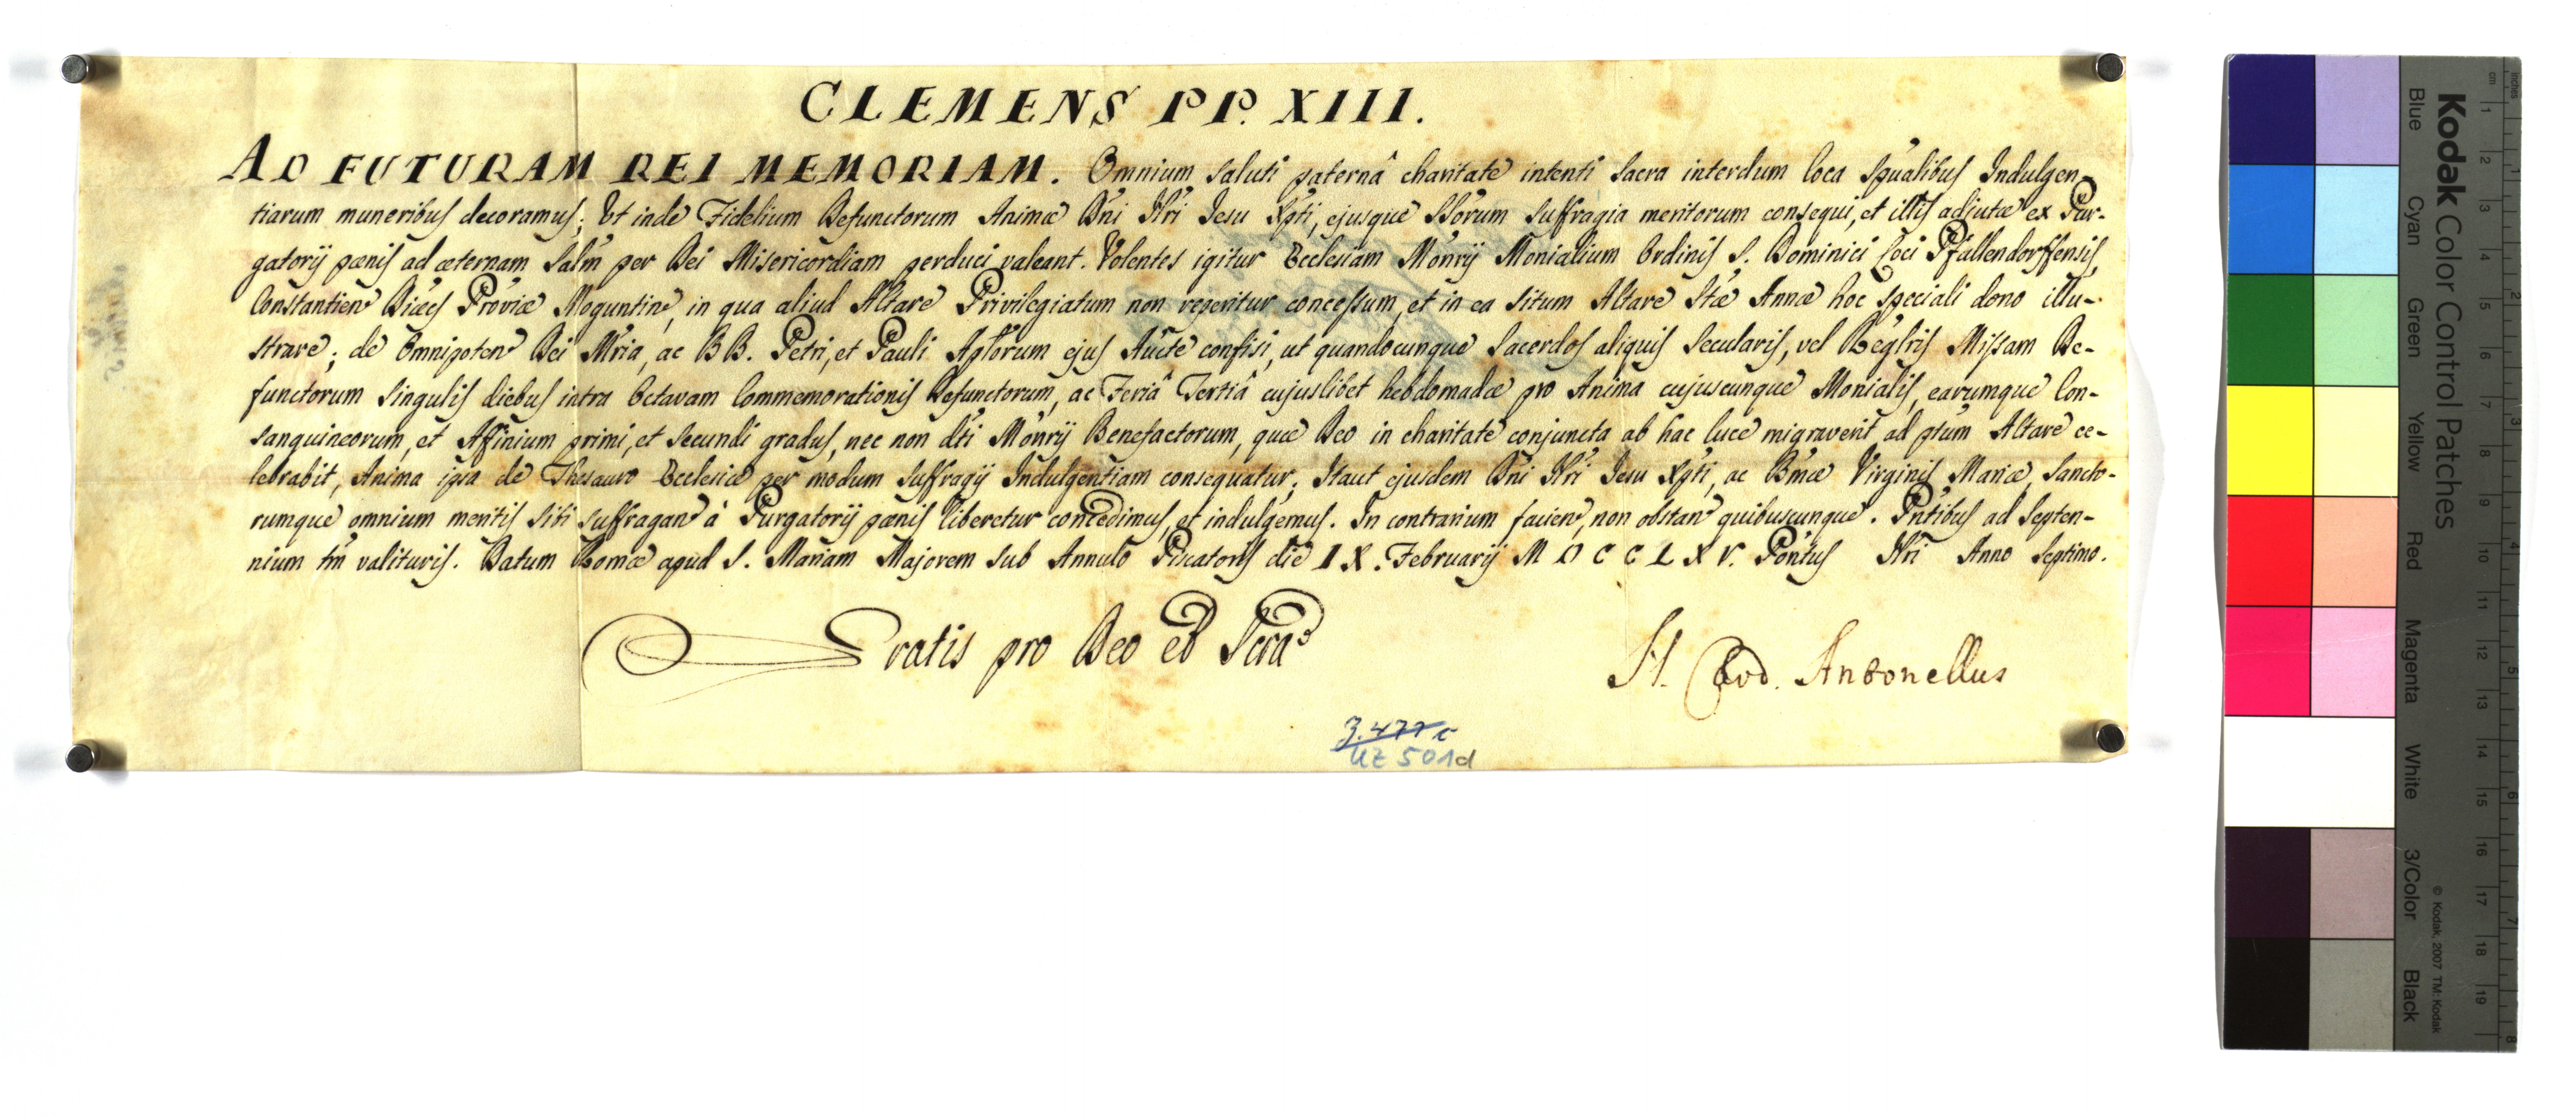 CLEMENS PP. XIII.
AD FUTURAM REI MEMORIAM. Omnium saluti paternâ charitate intenti sacra interdum loca Spualibus Indulgen-
tiarum muneribus decoramus; Ut inde Fidelium Defunctorum Animæ Dñi Ñri Jesu Xpti, ejusque SSorum suffragia meritorum consequi, et illis adjutæ ex Pur-
gatorij pœnis ad æternam Salm per Dei Misericordiam perduci valeant. Volentes igitur Ecclesiam Monrij Monialium Ordinis S. Dominici Loci Pfallendorffensis,
Constantien Diæcs Provîæ Moguntin, in qua aliud Altare Privilegiatum non reperitur concessum, et in ea situm Altare Stæ Annæ hoc speciali dono illu-
strare; de Omnipoten Dei Mria, ac BB. Petri, et Pauli Aplorum ejus Aucte confisi, ut quandocunque Sacerdos aliquis Secularis, vel Reglris Missam De-
functorum singulis diebus intra Octavam Commemorationis Defunctorum, ac Feriâ Tertiâ cujuslibet hebdomadæ pro Anima cujuscunque Monialis, earumque Con-
sanguineorum, et Affinium primi, et secundi gradus, nec non dti Monrij Benefactorum, quæ Deo in charitate conjuncta ab hac luce migraverit, ad ptum Altare ce-
lebrabit, Anima ipsa de Thesauro Ecclesiæ per modum suffragij Indulgentiam consequatur; Itaut ejusdem Dñi Ñri Jesu Xpti, ac Bmæ Virginis Mariæ, Sancto-
rumque omnium meritis sibi suffragan à Purgatorij pœnis liberetur concedimus, et indulgemus. In contrarium facien, non obstan quibuscunque. Pñtibus ad Septen-
nium tm̃ valituris. Datum Romæ apud S. Mariam Majorem sub Annulo Piscatoris die IX. Februarij MDCCLXV. Pontus Ñri Anno Septimo.
Gratis pro Deo et Scra
N. Card. Antonellus
3.477 c
UZ 501d
Kodak Color Control Patches
Blue Cyan Green Yellow Red Magenta White 3/Color Black
© Kodak, 2007 TM: Kodak
inches 1 2 3 4 5 6 7 8
cm 1 2 3 4 5 6 7 8 9 10 11 12 13 14 15 16 17 18 19